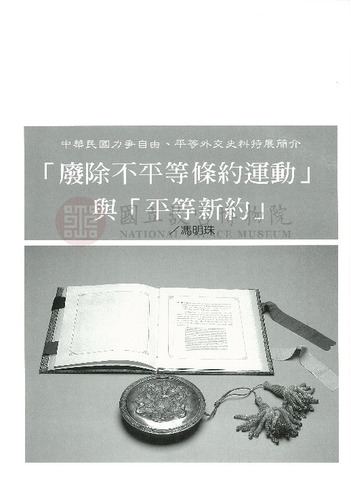 中華民國力爭自由、平等外交史料特展簡介
「廢除不平等條約運動」
與「平等新約」
國立故宮博物院
NATIONAL PALACE MUSEUM
／馮明珠